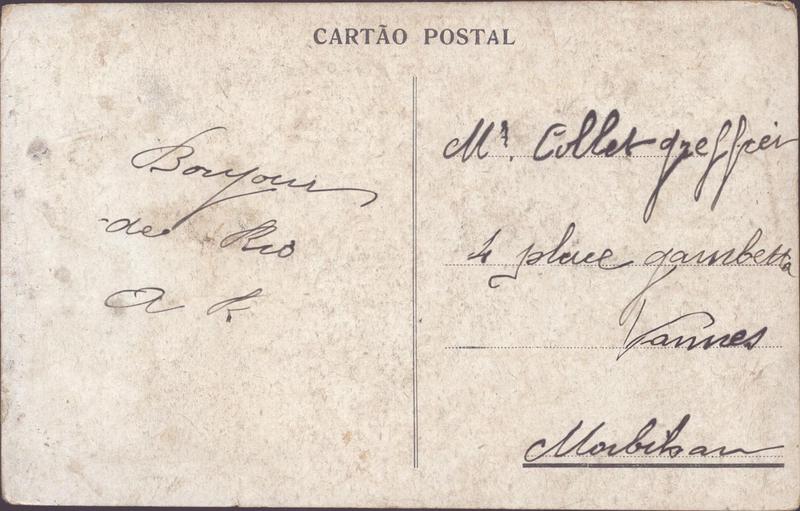 CARTÃO POSTAL
Bonjour
de Rio
A K.
Mr. Collet greffier
4 place gambetta
Vannes
Morbihan